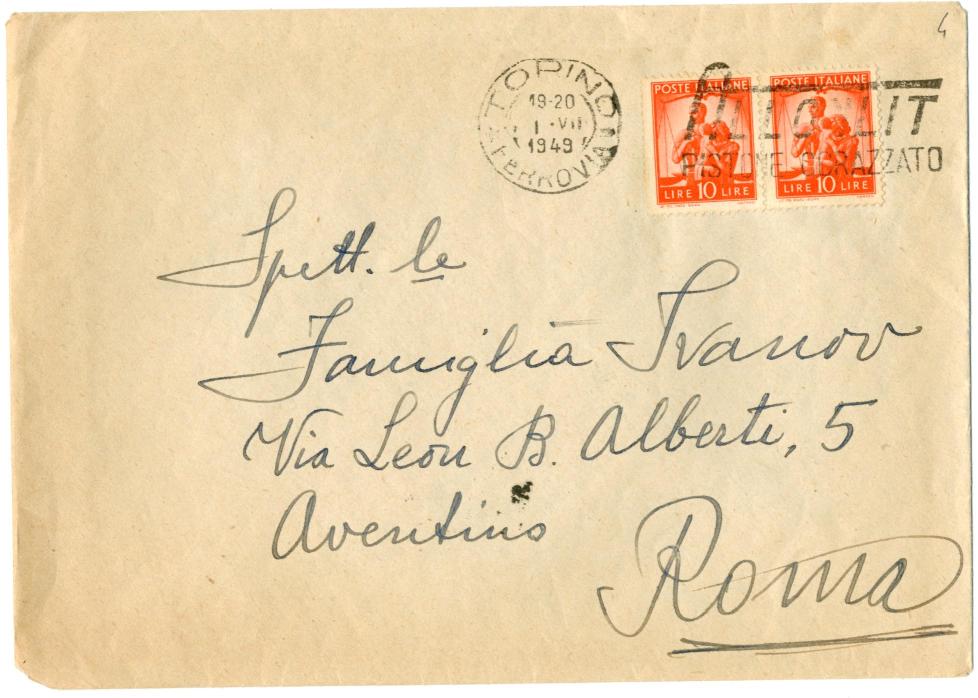 4
TORINO
19-20
1 · VII
1949
FERROVIA
POSTE ITALIANE
LIRE 10 LIRE
POSTE ITALIANE
LIRE 10 LIRE
PISTONE CORAZZATO
Spett. le
Famiglia Ivanov
Via Leon B. Alberti, 5
Aventino
Roma